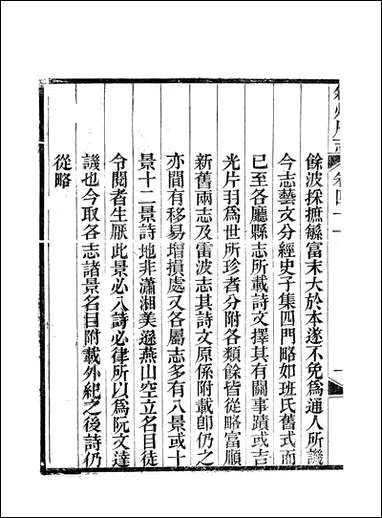 敘州府志 卷四十一 一
餘波採摭緐富末大於本遂不免爲通人所譏
今志藝文分經史子集四門略如班氏舊式而
已至各廳縣志所載詩文擇其有關事蹟或吉
光片羽爲世所珍者分附各類餘皆從略富順
新舊兩志及雷波志其詩文原係附載卽仍之
亦間有移易增損處又各屬志多有八景或十
景十二景詩地非瀟湘美遜燕山空立名目徒
令閱者生厭此景必入詩必律所以爲阮文達
譏也今取各志諸景名目附載外紀之後詩仍
從略